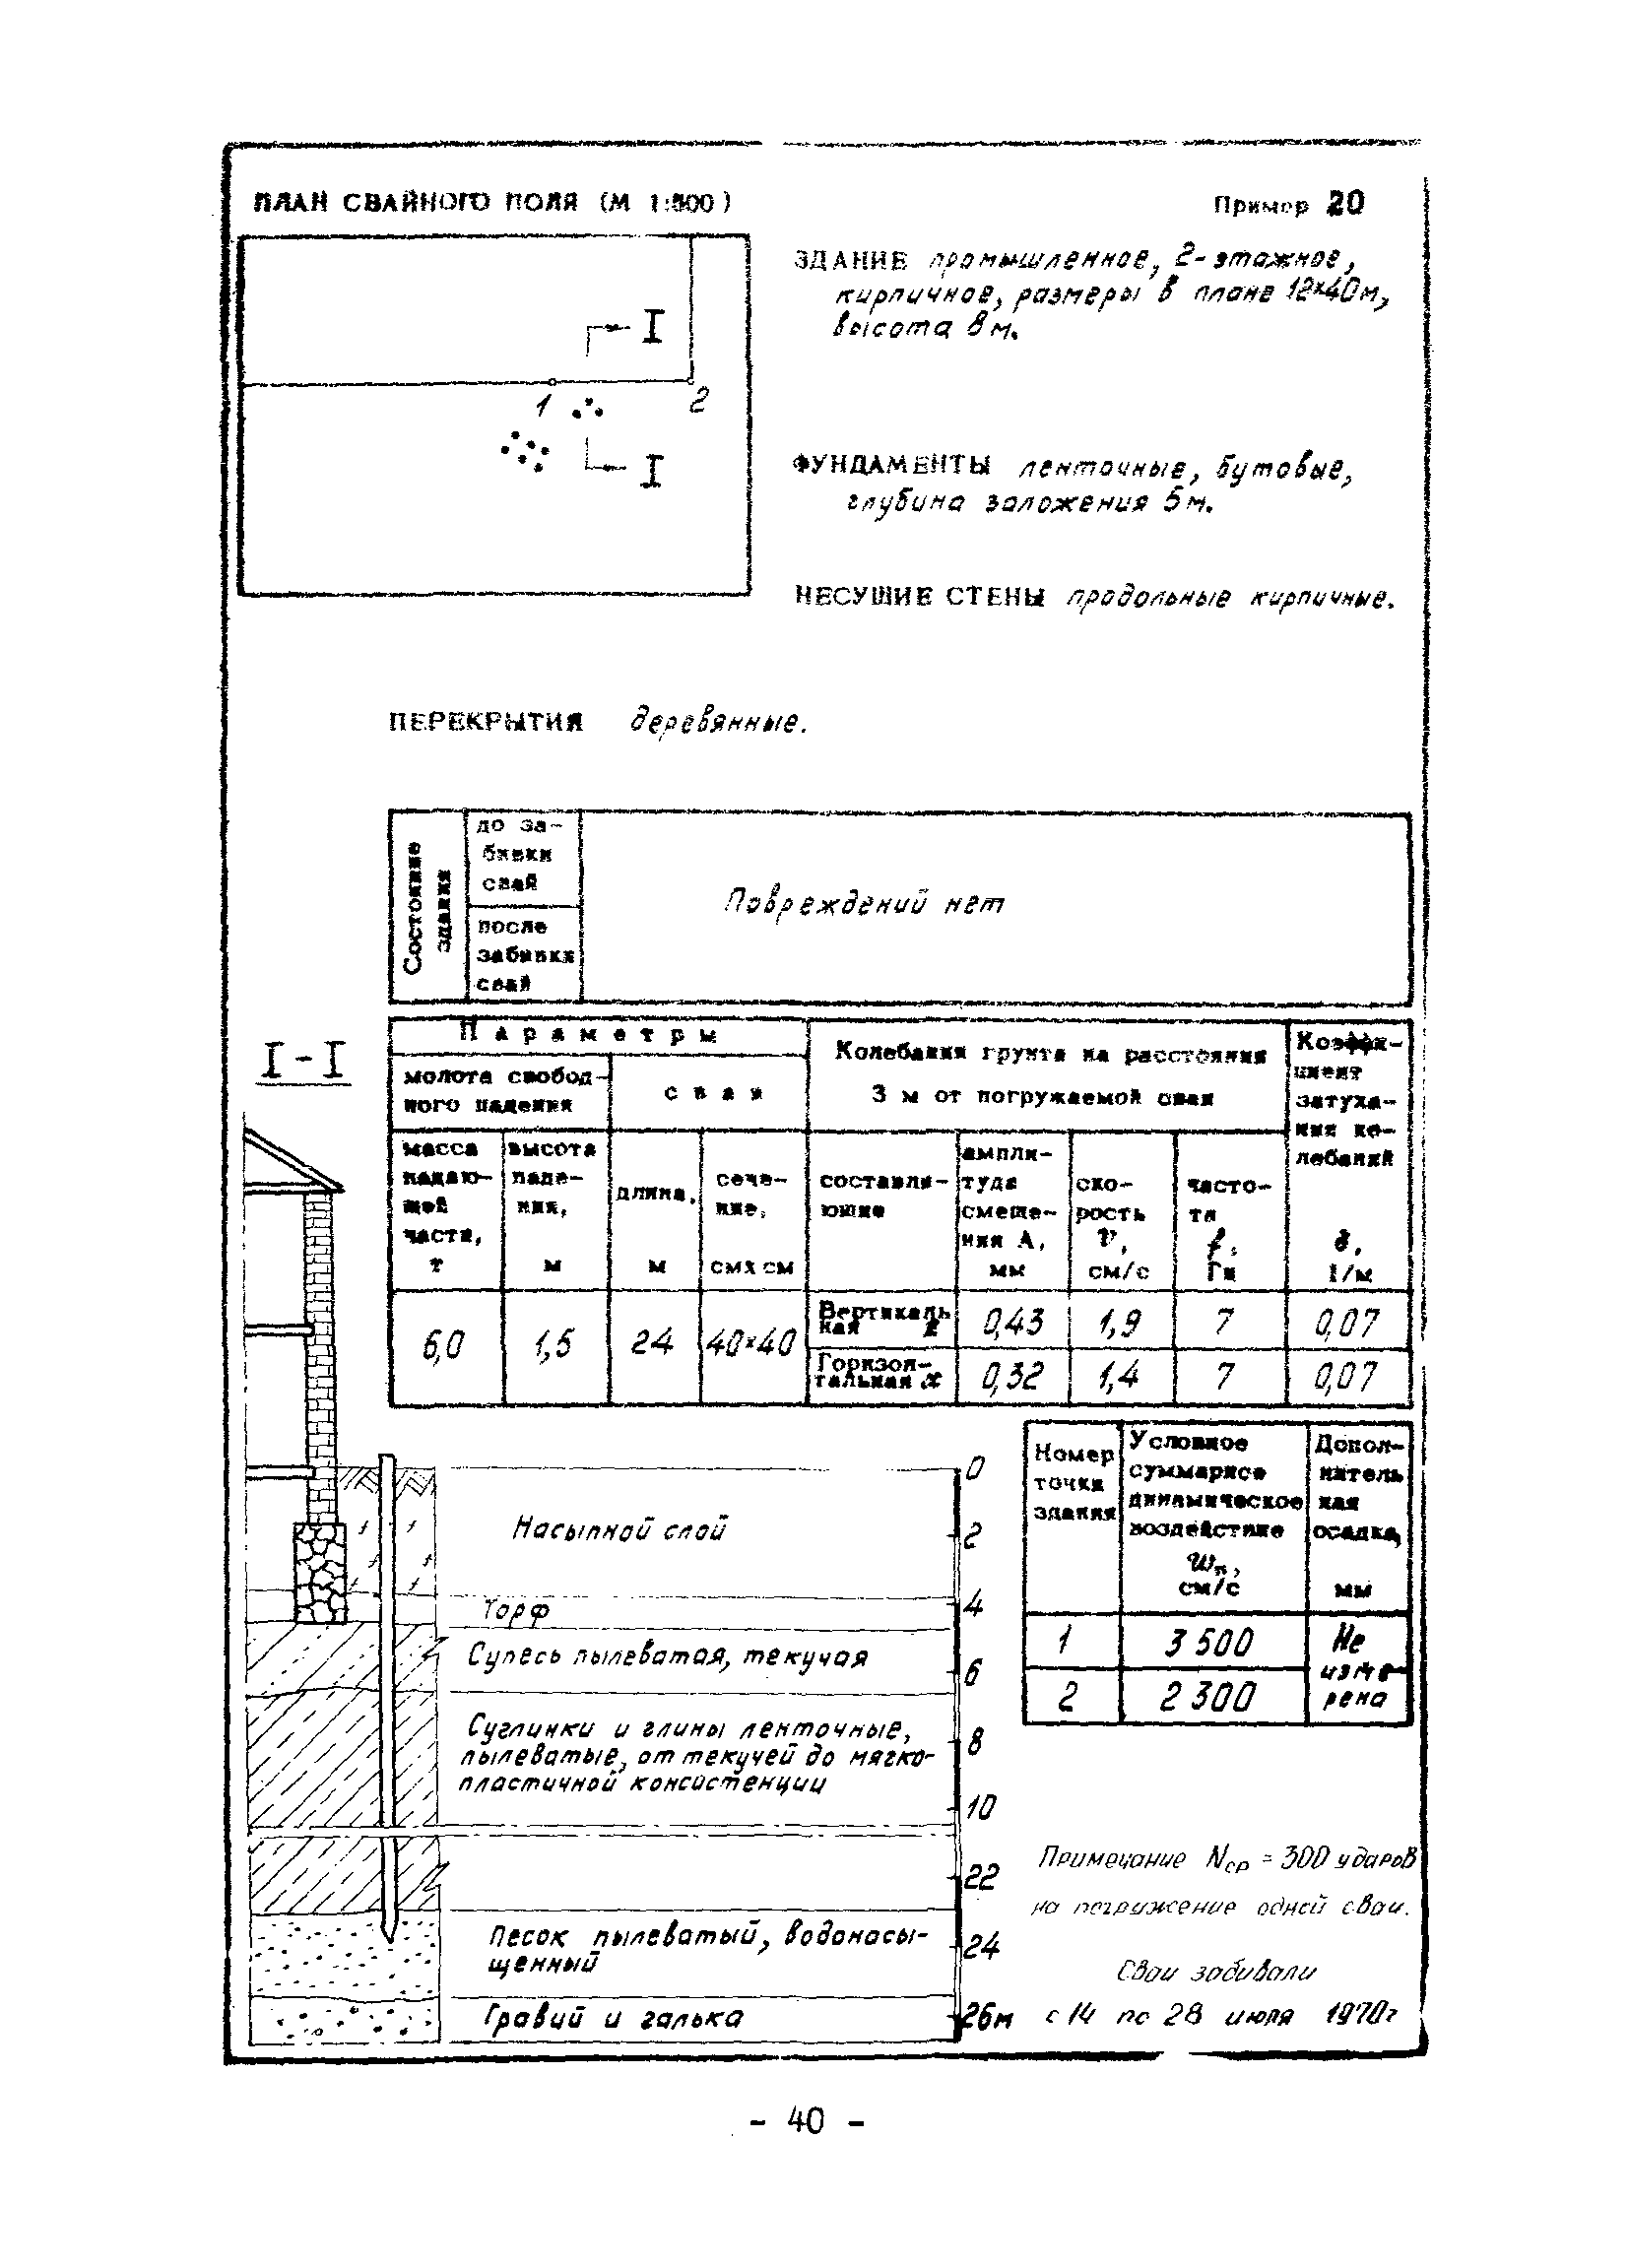 ПЛАН СВАЙНОГО ПОЛЯ (М 1:500)
Пример 20
I
1
2
I
ЗДАНИЕ промышленное, 2-этажное,
кирпичное, размеры в плане 12×40м,
высота 8м.
ФУНДАМЕНТЫ ленточные, бутовые,
глубина заложения 5м.
НЕСУЩИЕ СТЕНЫ продольные кирпичные.
ПЕРЕКРЫТИЯ деревянные.
Состояние здания
до за-
бивки
свай
после
забивки
свай
Повреждений нет
I-I
Параметры
молота свобод-
ного падения
свая
Колебания грунта на расстоянии
3 м от погружаемой сваи
Коэффи-
циент
затуха-
ния ко-
лебаний
δ,
1/м
масса
падаю-
щей
части,
т
высота
паде-
ния,
м
длина,
м
сече-
ние,
см×см
составля-
ющие
ампли-
туда
смеще-
ния А,
мм
ско-
рость
v,
см/с
часто-
та
f,
Гц
6,0
1,5
24
40×40
Вертикаль
ная z
0,43
1,9
7
0,07
Горизон-
тальная x
0,32
1,4
7
0,07
Номер
точки
здания
Условное
суммарное
динамическое
воздействие
Wп,
см/с
Допол-
нитель
ная
осадка,
мм
1
3 500
Не
изме-
рена
2
2 300
Насыпной слой
Торф
Супесь пылеватая, текучая
Суглинки и глины ленточные,
пылеватые, от текучей до мягко-
пластичной консистенции
Песок пылеватый, водонасы-
щенный
Гравий и галька
0
2
4
6
8
10
22
24
26м
Примечание Nср = 300 ударов
на погружение одной сваи.
Сваи забивали
с 14 по 28 июля 1970г
- 40 -